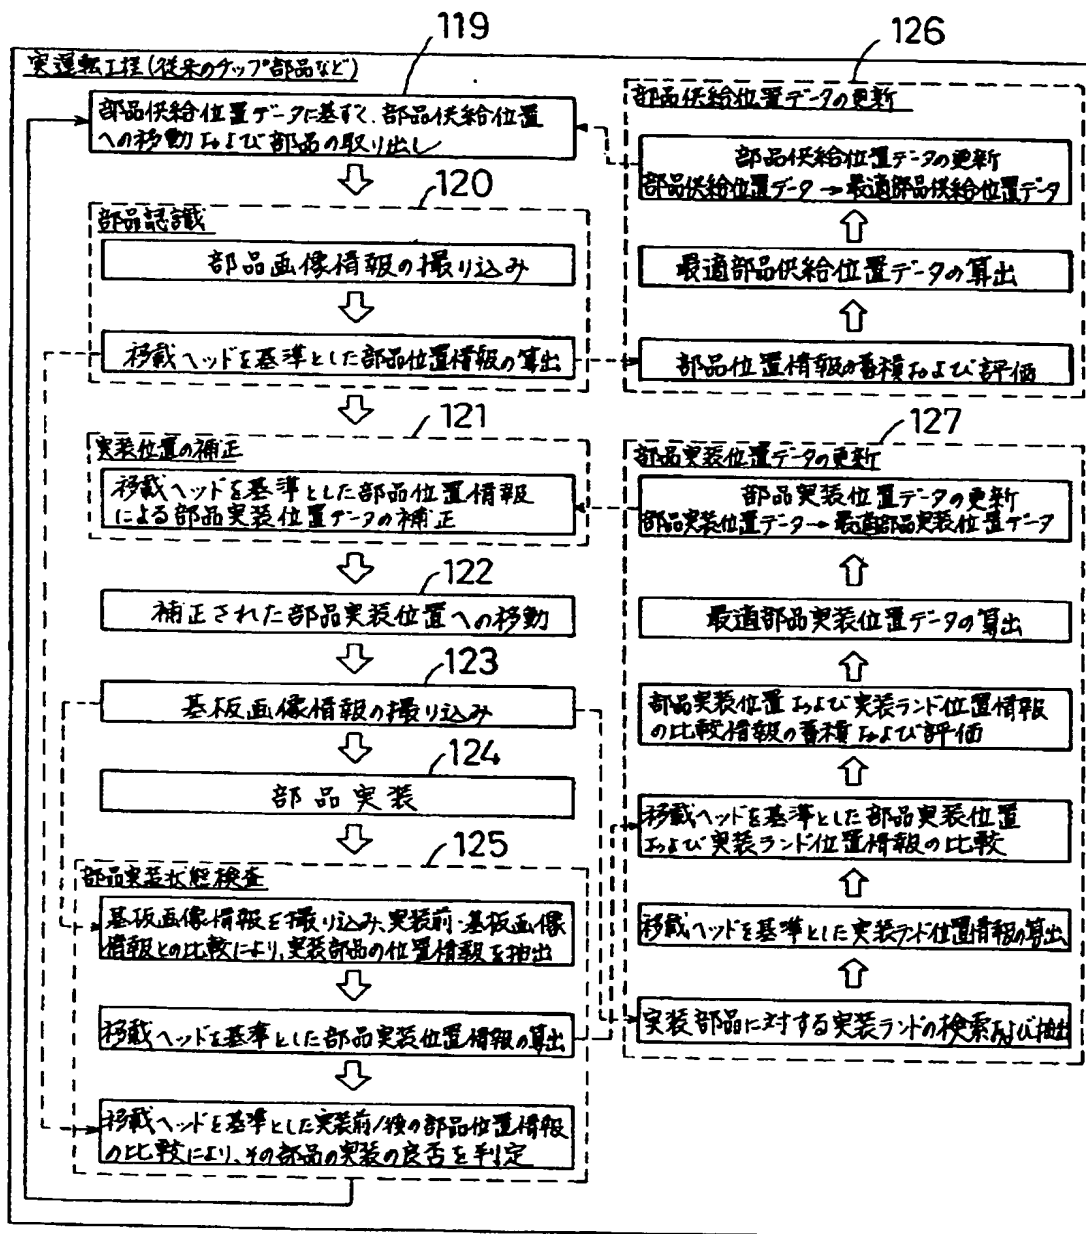 119
実運転工程(従来のチップ部品など)
部品供給位置データに基ずく、部品供給位置
への移動および部品の取り出し
120
部品認識
部品画像情報の撮り込み
移載ヘッドを基準とした部品位置情報の算出
121
実装位置の補正
移載ヘッドを基準とした部品位置情報
による部品実装位置データの補正
122
補正された部品実装位置への移動
123
基板画像情報の撮り込み
124
部品実装
125
部品実装状態検査
基板画像情報を撮り込み、実装前・基板画像
情報との比較により、実装部品の位置情報を抽出
移載ヘッドを基準とした部品実装位置情報の算出
移載ヘッドを基準とした実装前/後の部品位置情報
の比較により、その部品の実装の良否を判定
126
部品供給位置データの更新
部品供給位置データの更新
部品供給位置データ→最適部品供給位置データ
最適部品供給位置データの算出
部品位置情報の蓄積および評価
127
部品実装位置データの更新
部品実装位置データの更新
部品実装位置データ→最適部品実装位置データ
最適部品実装位置データの算出
部品実装位置および実装ランド位置情報
の比較情報の蓄積および評価
移載ヘッドを基準とした部品実装位置
および実装ランド位置情報の比較
移載ヘッドを基準とした実装ランド位置情報の算出
実装部品に対する実装ランドの検索および抽出